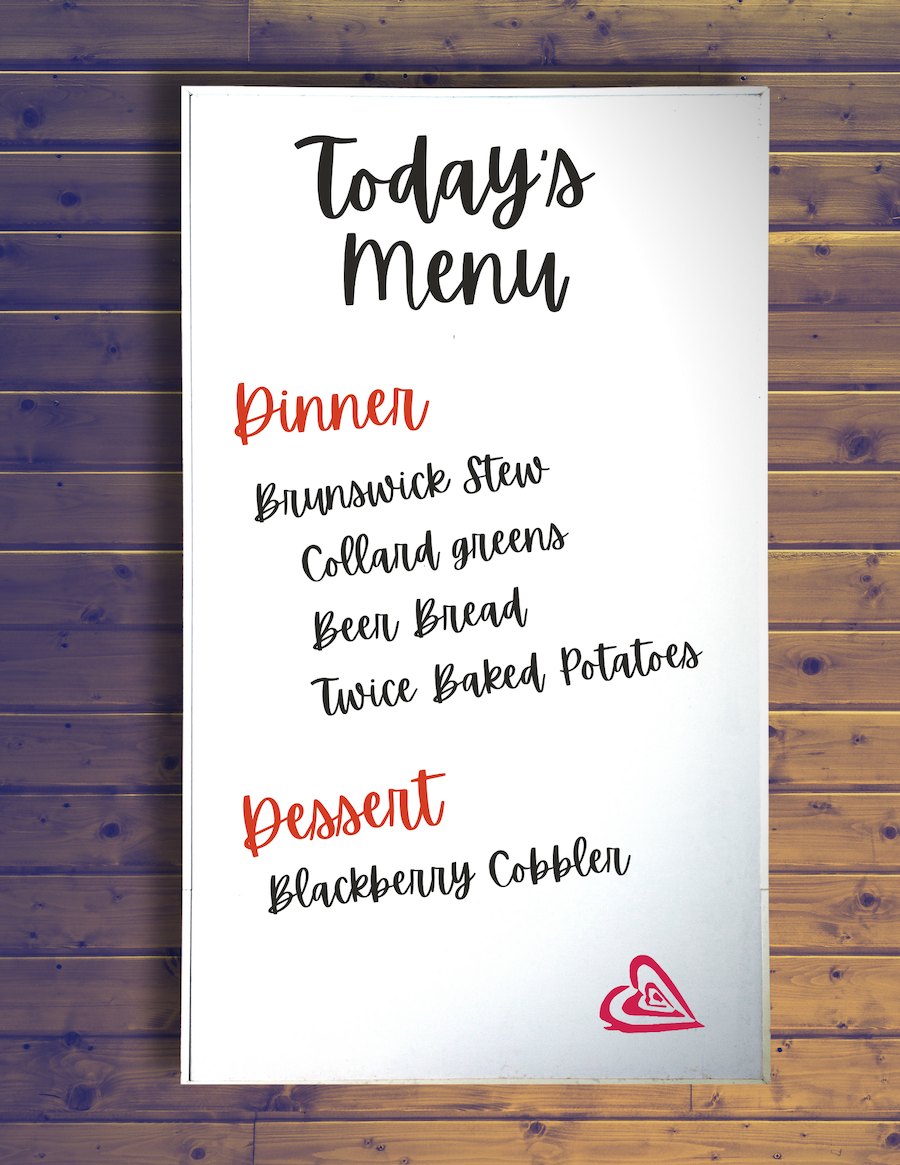 Today's
Menu
Dinner
Brunswick Stew
Collard greens
Beer Bread
Twice Baked Potatoes
Dessert
Blackberry Cobbler